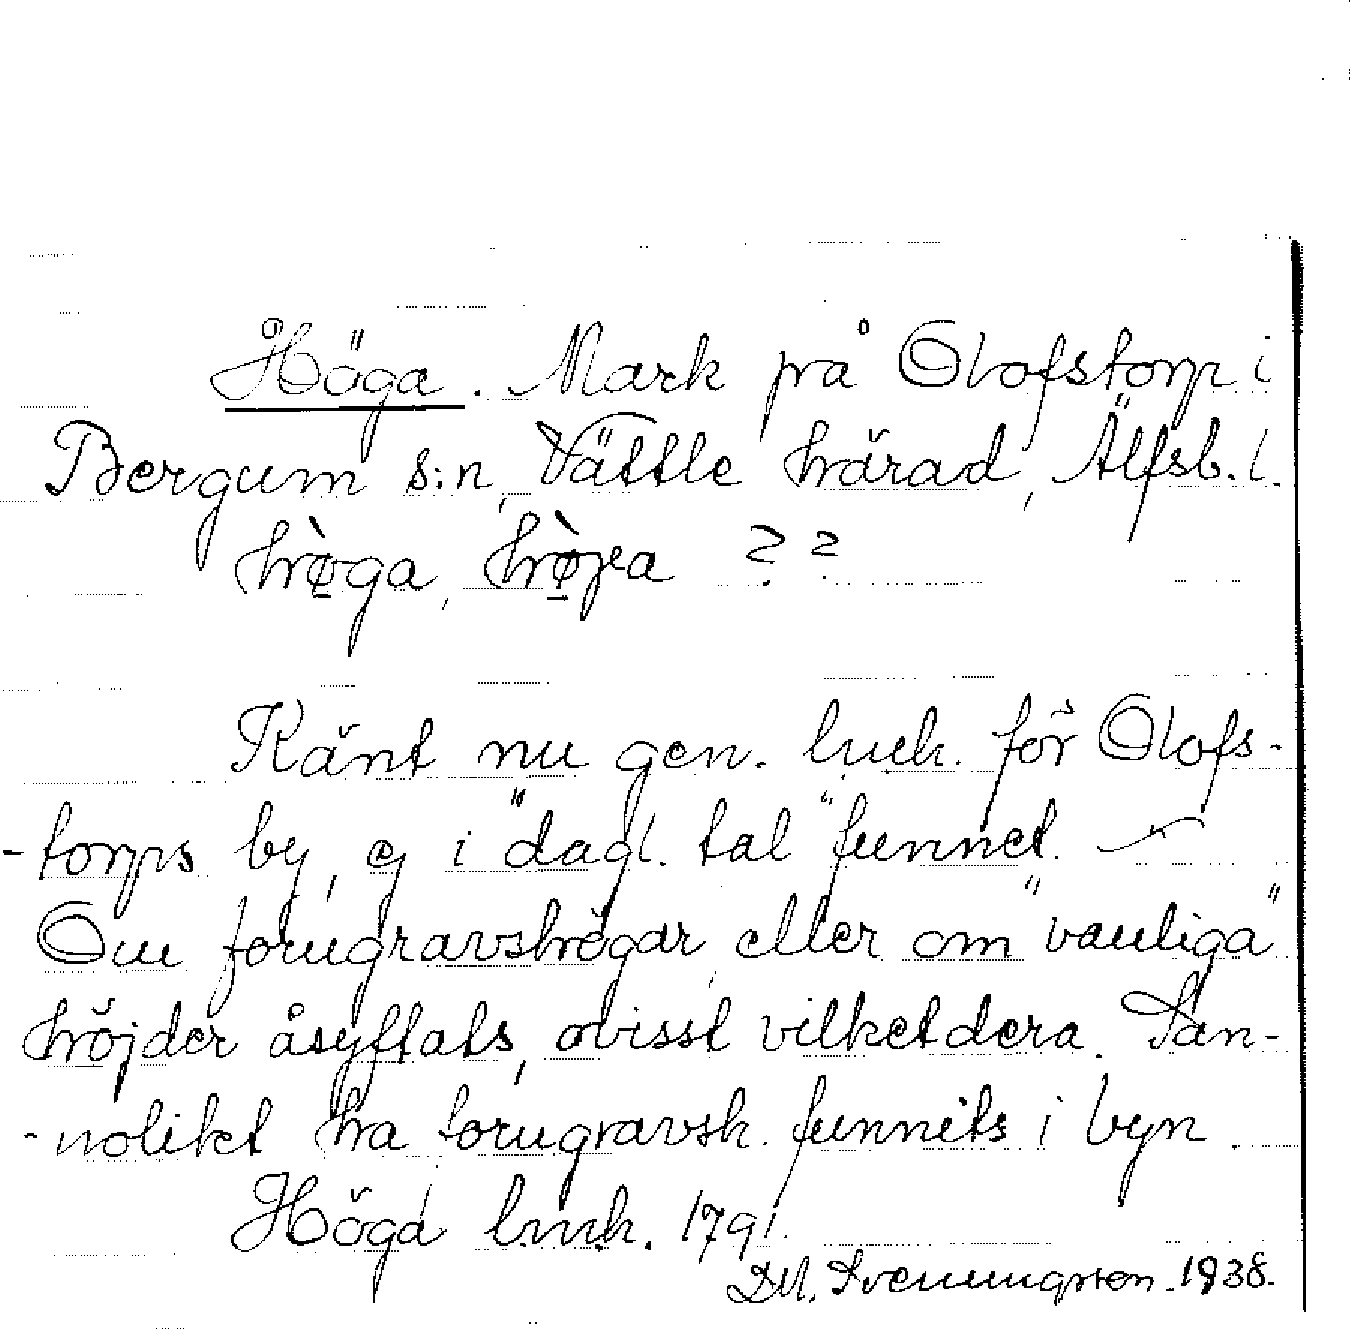 Höga. Mark på Olofstorp i
Bergum s:n, Vättle härad, Älfsb. l.
hø̀ga, hø̀γa ? ?
Känt nu gen. lmk. för Olofs-
-torps by, ej i "dagl. tal" funnet. —
Om forngravshögar, eller om "vanliga"
höjder åsyftats, ovisst vilketdera. San-
-nolikt ha forngravsh. funnits i byn.
Höga lmk. 1791.
Svenungsson. 1938.